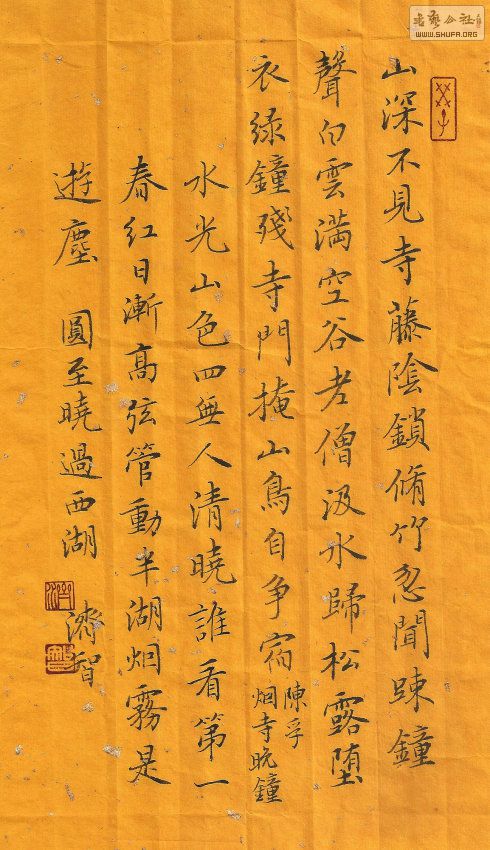 山深不見寺藤陰鎖脩竹忽聞疎鐘
聲白雲満空谷老僧汲水歸松露堕
衣緑鐘残寺門掩山鳥自争宿
陳孚
烟寺晩鐘
水光山色四無人清曉誰看第一
春紅日漸高弦管動半湖烟霧是
遊塵 圓至曉過西湖
濟智
书艺公社
WWW.SHUFA.ORG